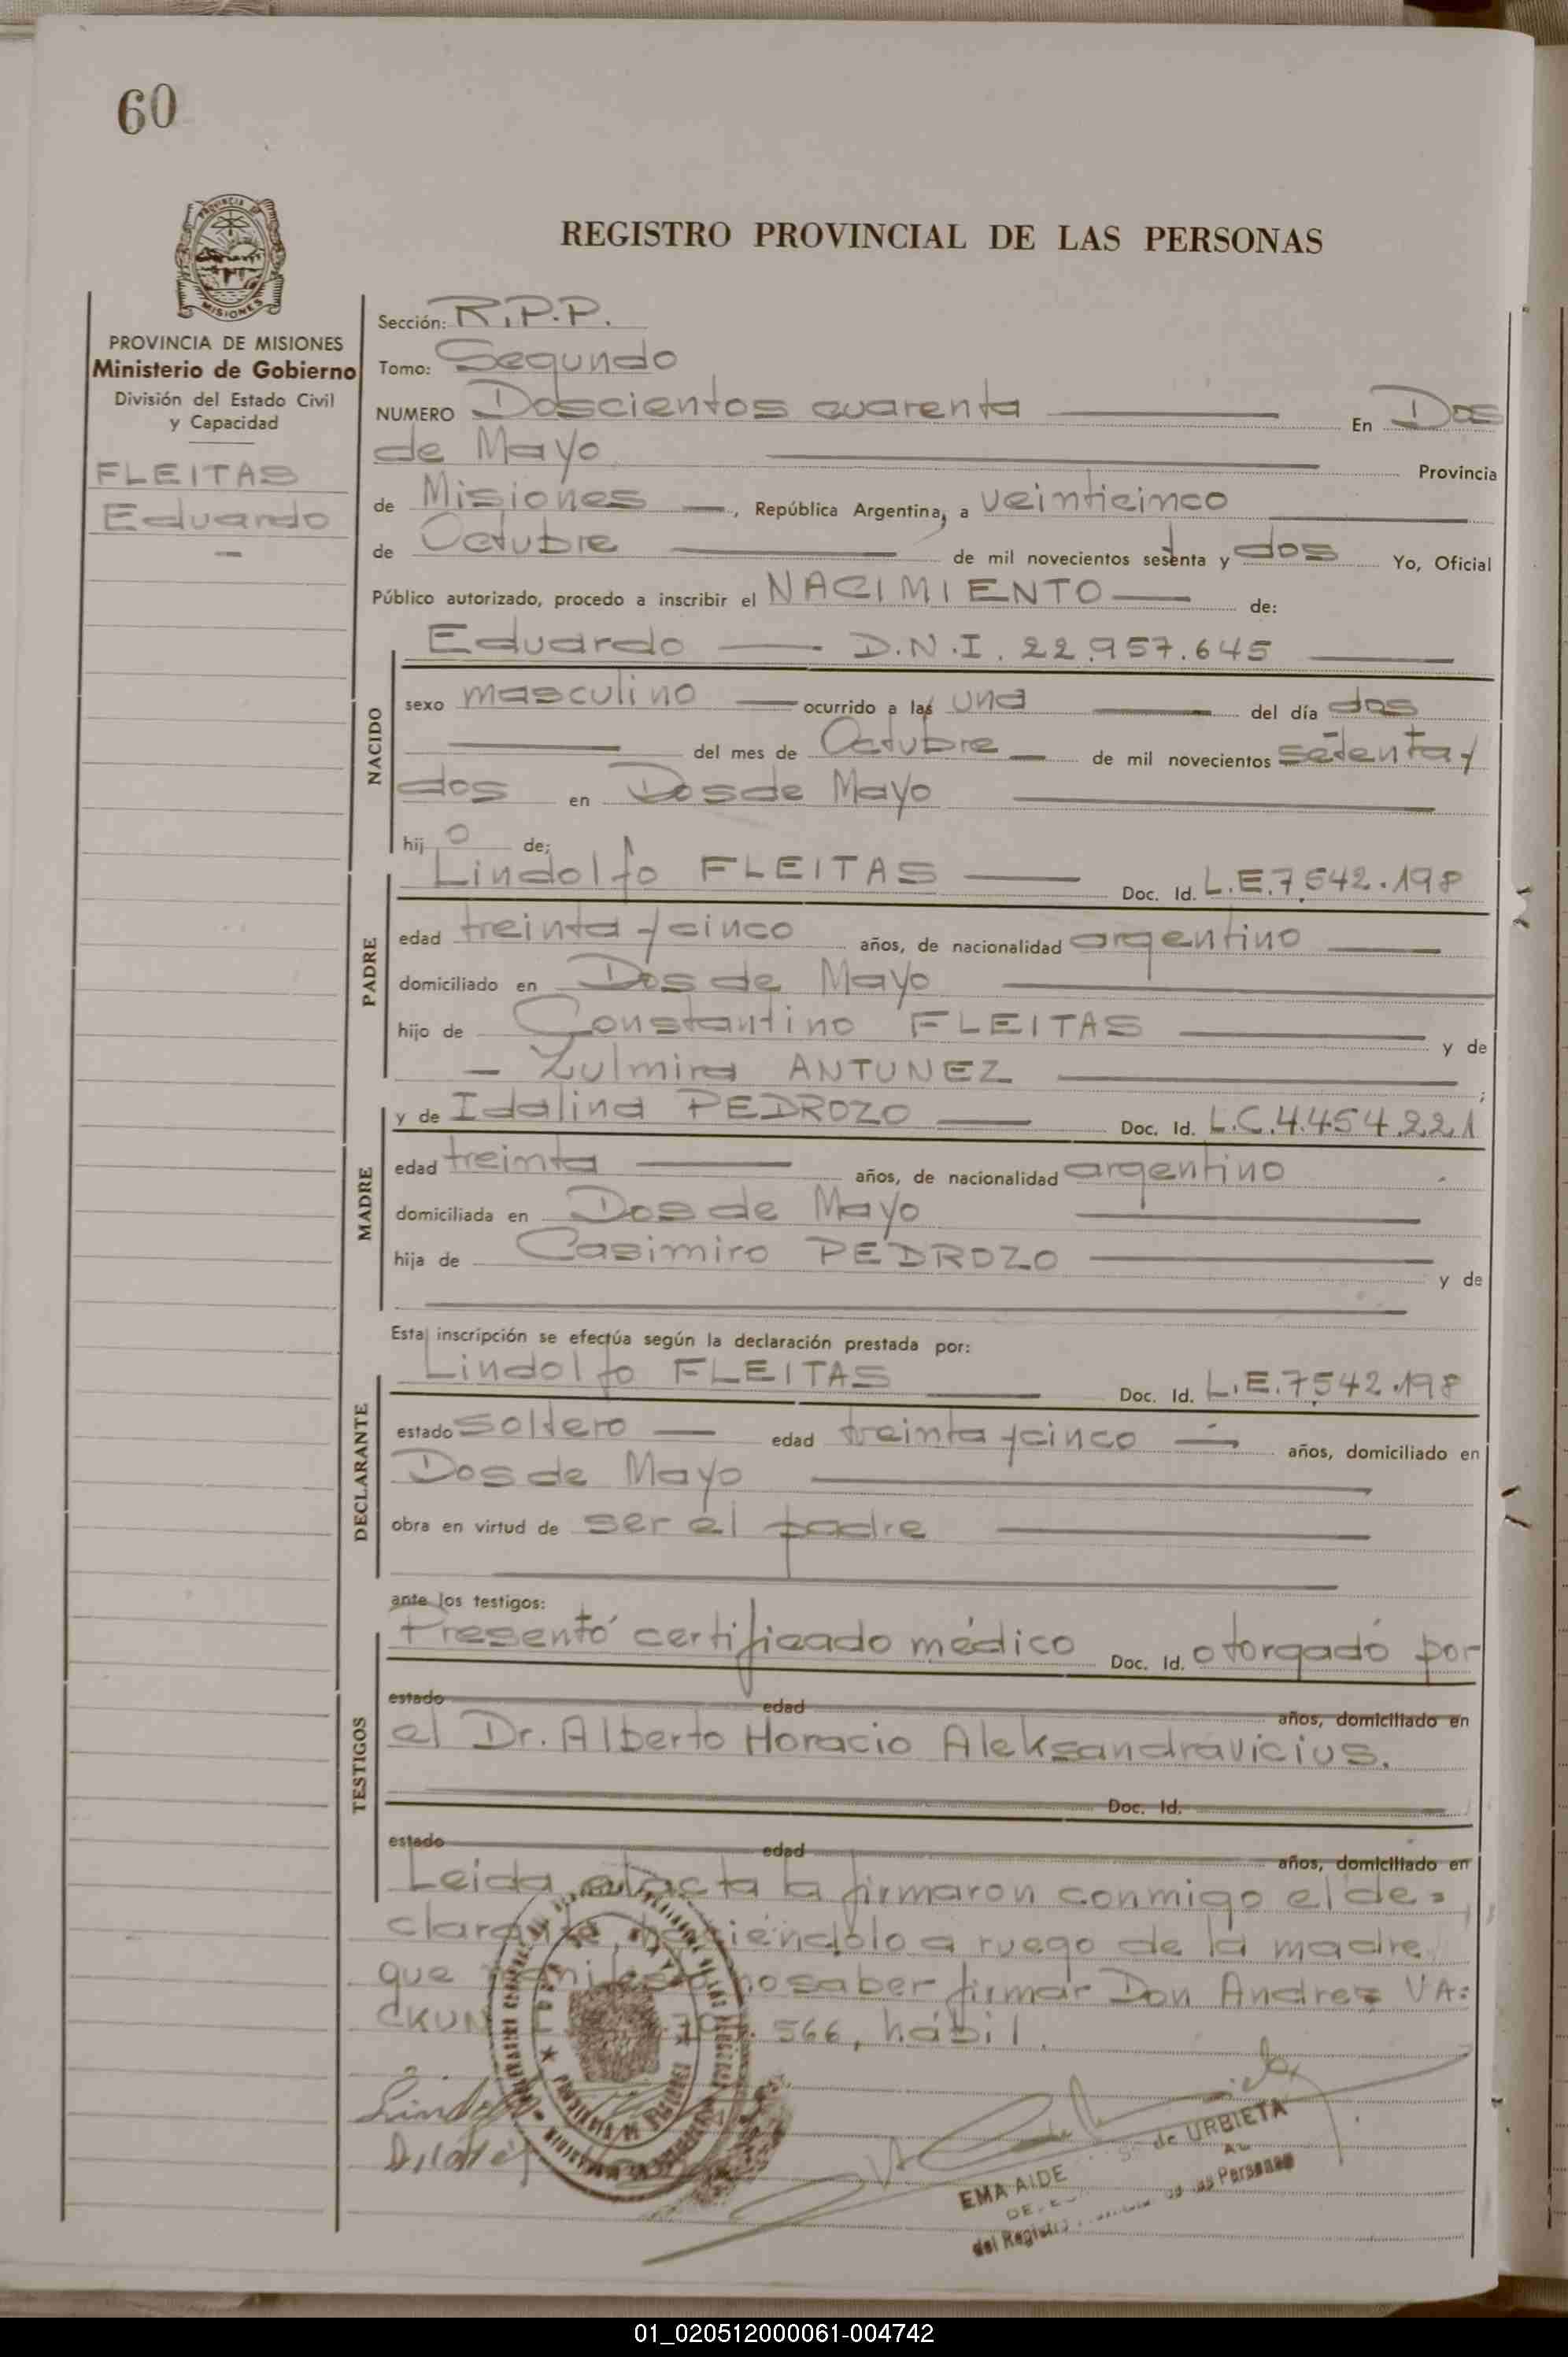 60
PROVINCIA DE
MISIONES
REGISTRO PROVINCIAL DE LAS PERSONAS
PROVINCIA DE MISIONES
Ministerio de Gobierno
División del Estado Civil
y Capacidad
FLEITAS
Eduardo
Sección: R.P.P.
Tomo: Segundo
NUMERO Doscientos cuarenta En Dos
de Mayo Provincia
de Misiones, República Argentina, a veinticinco
de Octubre de mil novecientos setenta y dos Yo, Oficial
Público autorizado, procedo a inscribir el NACIMIENTO de:
Eduardo D.N.I. 22.957.645
NACIDO
sexo masculino ocurrido a las una del día dos
del mes de Octubre de mil novecientos setenta y
dos en Dos de Mayo
hijo de:
Lindolfo FLEITAS Doc. Id. L.E.7.542.198
PADRE
edad treinta y cinco años, de nacionalidad argentino
domiciliado en Dos de Mayo
hijo de Constantino FLEITAS y de
Zulmira ANTUNEZ ;
y de Idalina PEDROZO Doc. Id. L.C.4.454.221
MADRE
edad treinta años, de nacionalidad argentino
domiciliada en Dos de Mayo
hija de Casimiro PEDROZO y de
Esta inscripción se efectúa según la declaración prestada por:
Lindolfo FLEITAS Doc. Id. L.E.7.542.198
DECLARANTE
estado soltero edad treinta y cinco años, domiciliado en
Dos de Mayo
obra en virtud de ser el padre
ante los testigos:
Presentó certificado médico Doc. Id. otorgado por
TESTIGOS
estado edad años, domiciliado en
el Dr. Alberto Horacio Aleksandravicius.
Doc. Id.
estado edad años, domiciliado en
Leida el acta la firmaron conmigo el de=
clarante, haciéndolo a ruego de la madre
que manifestó no saber firmar Don Andres VA=
CKUN 566, hábil.
EMA AIDE de URBIETA
del Registro de las Personas
01_020512000061-004742